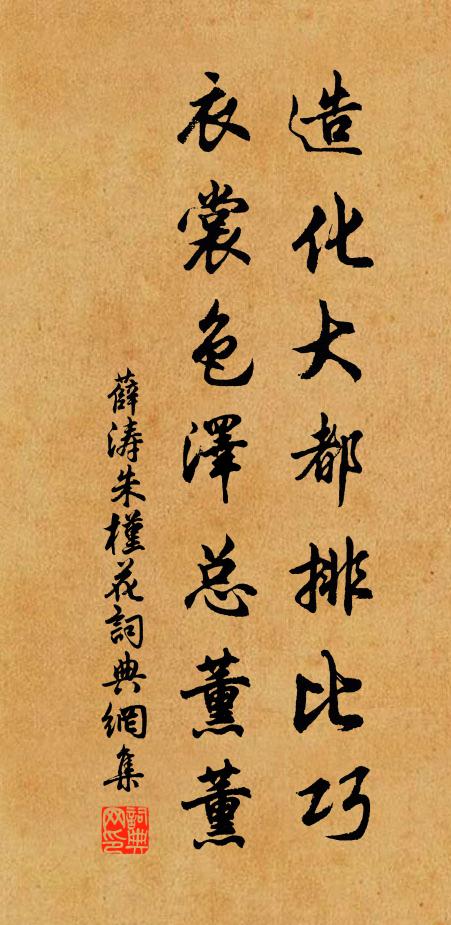 造化大都排比巧
衣裳色澤总薰薰
薛涛朱槿花詞典網集
詞典网印